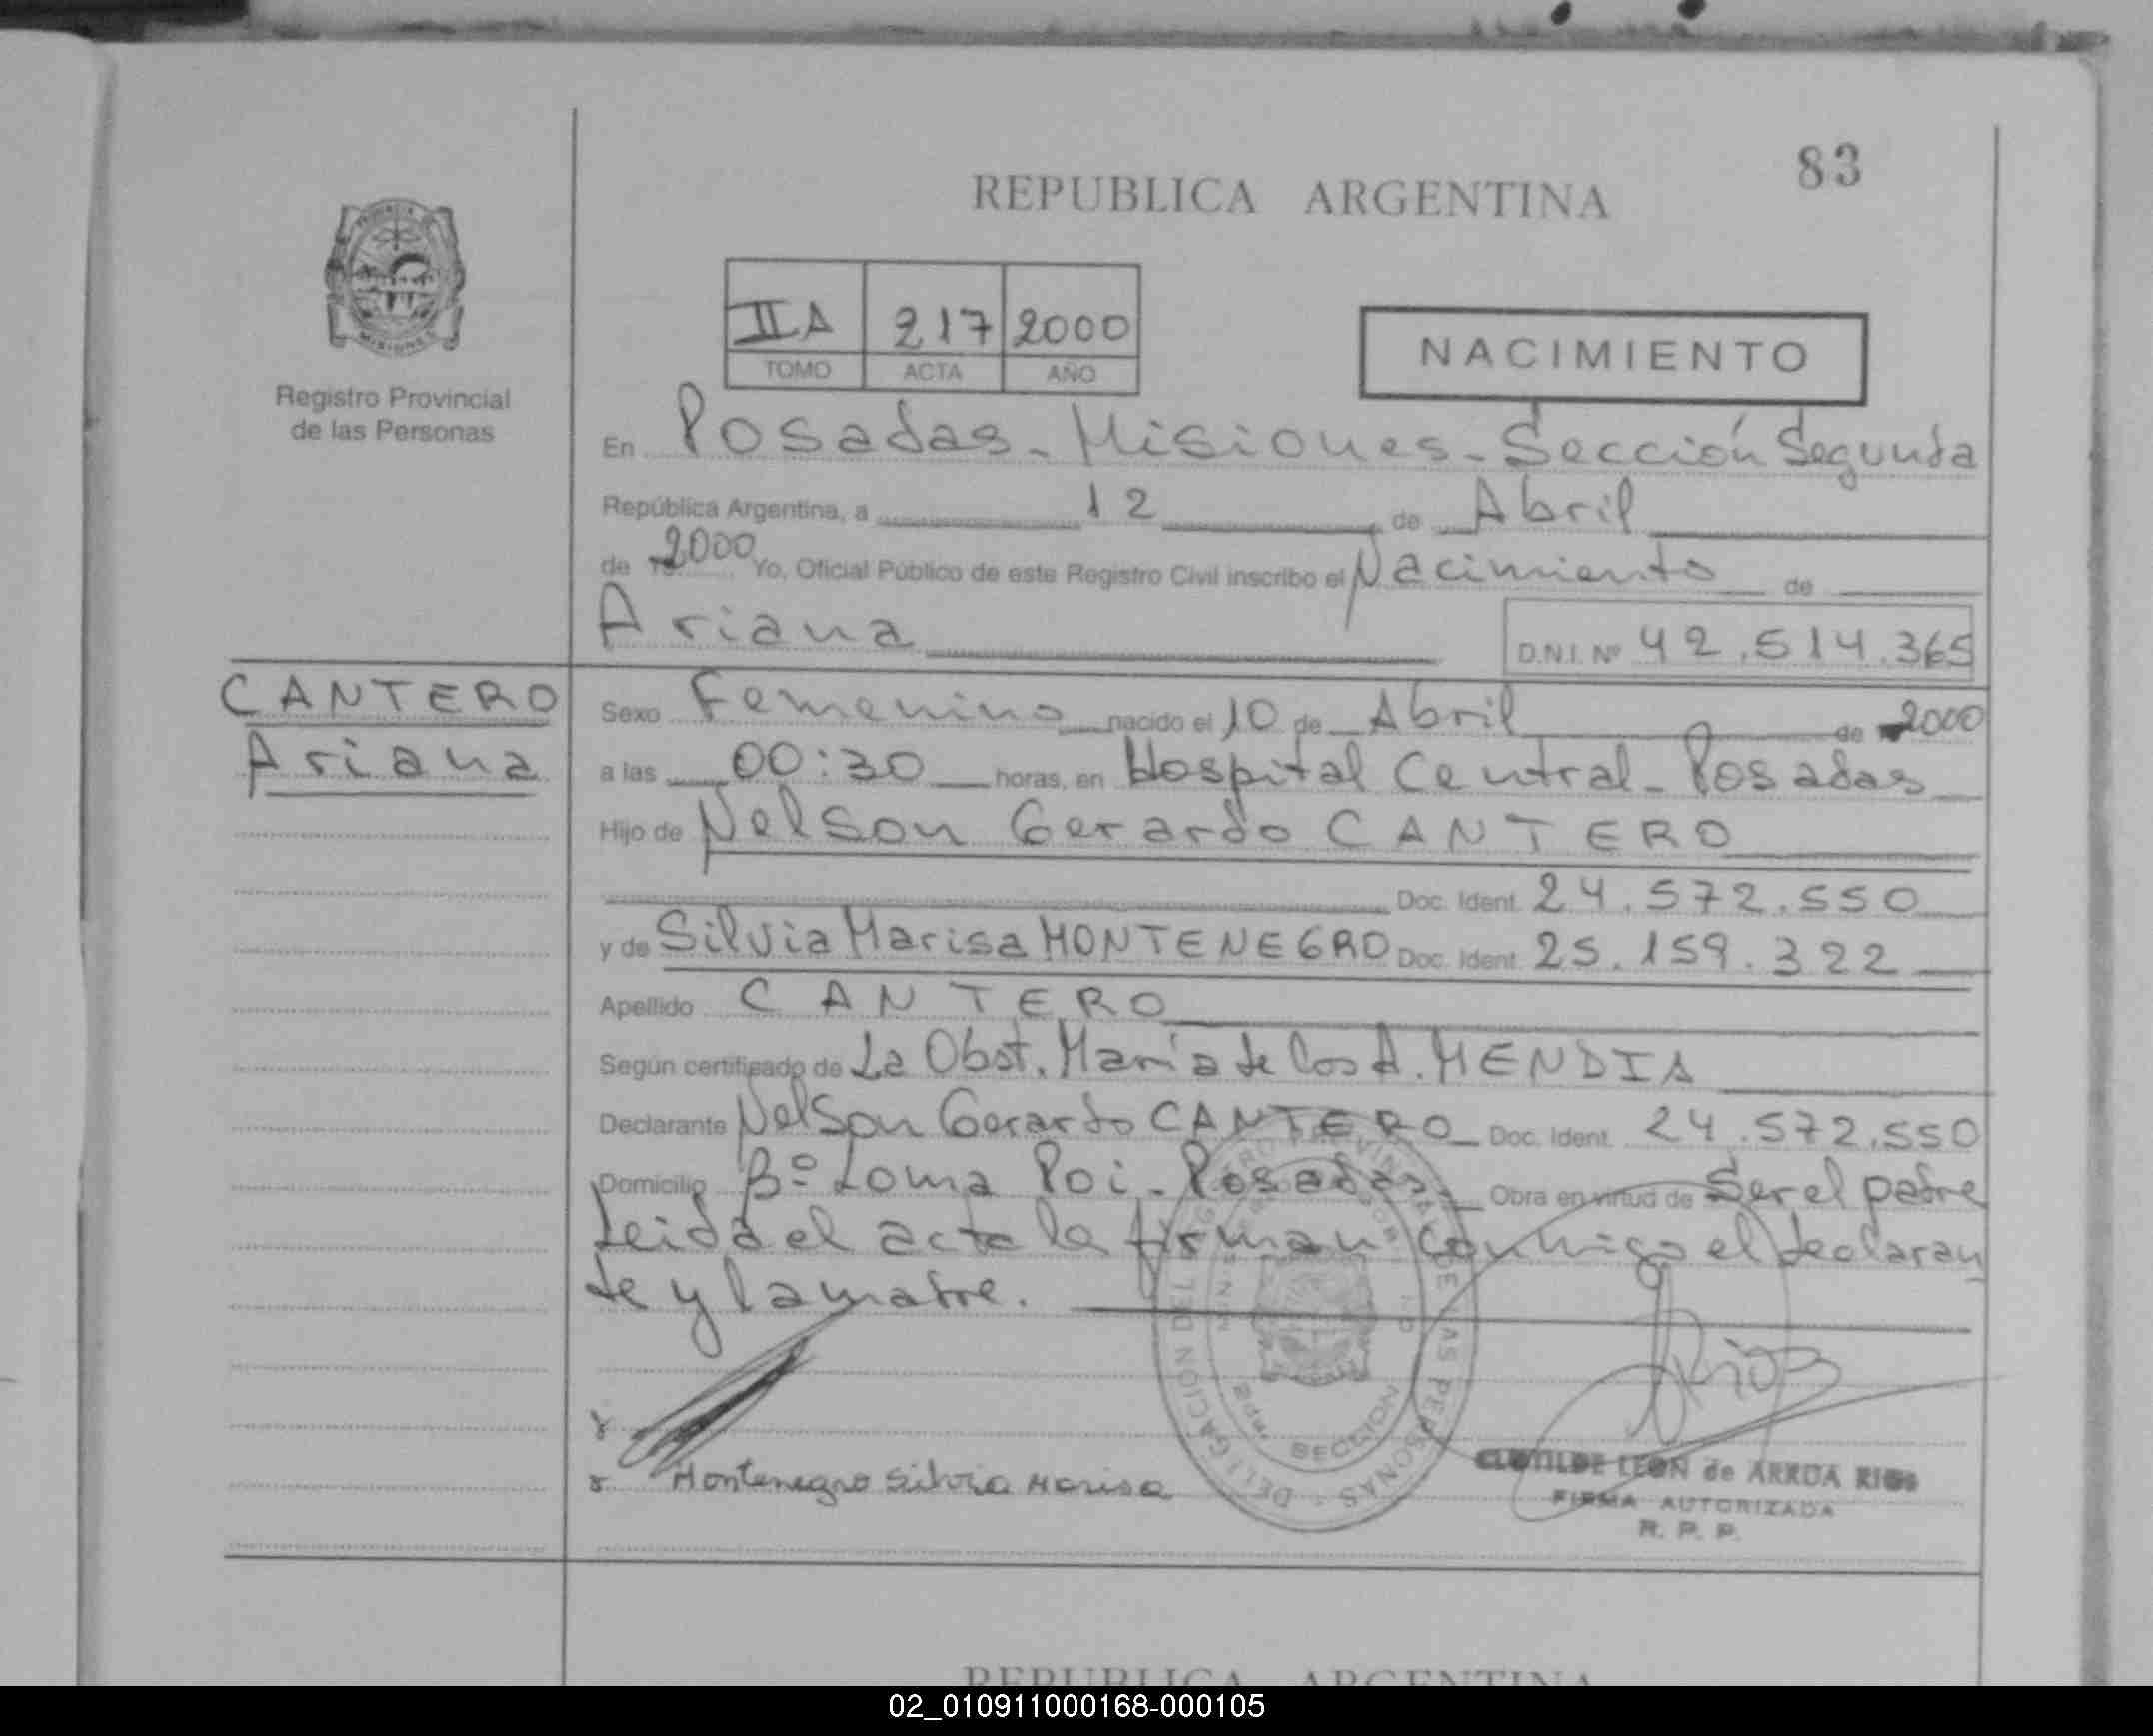 83
REPUBLICA ARGENTINA
PROVINCIA DE
MISIONES
Registro Provincial
de las Personas
IIA 217 2000
TOMO ACTA AÑO
NACIMIENTO
En Posadas - Misiones - Sección Segunda
República Argentina, a 12 de Abril
de 2000 Yo, Oficial Público de este Registro Civil inscribo el Nacimiento de
Ariana D.N.I. Nº 42.514.365
CANTERO
Ariana
Sexo Femenino nacido el 10 de Abril de 2000
a las 00:30 horas, en Hospital Central - Posadas
Hijo de Nelson Gerardo CANTERO
Doc. Ident. 24.572.550
y de Silvia Marisa MONTENEGRO Doc. Ident. 25.159.322
Apellido CANTERO
Según certificado de La Obst. María de los A. MENDIA
Declarante Nelson Gerardo CANTERO Doc. Ident. 24.572.550
Domicilio Bº Loma Poi - Posadas - Obra en virtud de Ser el padre
Leida el acta la firman conmigo el declaran
te y la madre.
Rios
Montenegro Silvia Marisa
DELEGACION DEL REGISTRO PROVINCIAL DE LAS PERSONAS
SECCION 2da
CLOTILDE LEON de ARRUA RIOS
FIRMA AUTORIZADA
R. P. P.
REPUBLICA ARGENTINA
02_010911000168-000105